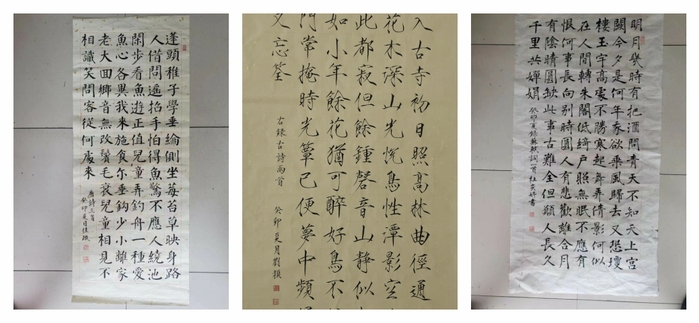 蓬頭稚子學垂綸側坐莓苔草映身路
人借問遙招手怕得魚驚不應人繞池
閑步看魚遊正值兒童弄釣舟一種愛
魚心各異我來施食尔垂鈎少小離家
老大回鄉音無改鬢毛衰兒童相見不
相識笑問客從何處來
唐詩三首
癸卯夏月
入古寺初日照高林曲徑通
花木深山光悅鳥性潭影空
此都寂但餘鍾磬音山静似
如小年餘花猶可醉好鳥不
門常掩時光簟已便夢中頻
又忘筌
右錄古詩两首
癸卯夏月劉
明月幾時有把酒問青天不知天上宮
闕今夕是何年我欲乘風歸去又恐瓊
樓玉宇高處不勝寒起舞弄清影何似
在人間轉朱閣低綺户照無眠不應有
恨何事長向別時圓人有悲歡離合月
有陰晴圓缺此事古難全但願人長久
千里共嬋娟
癸卯夏錄蘇軾詞一首